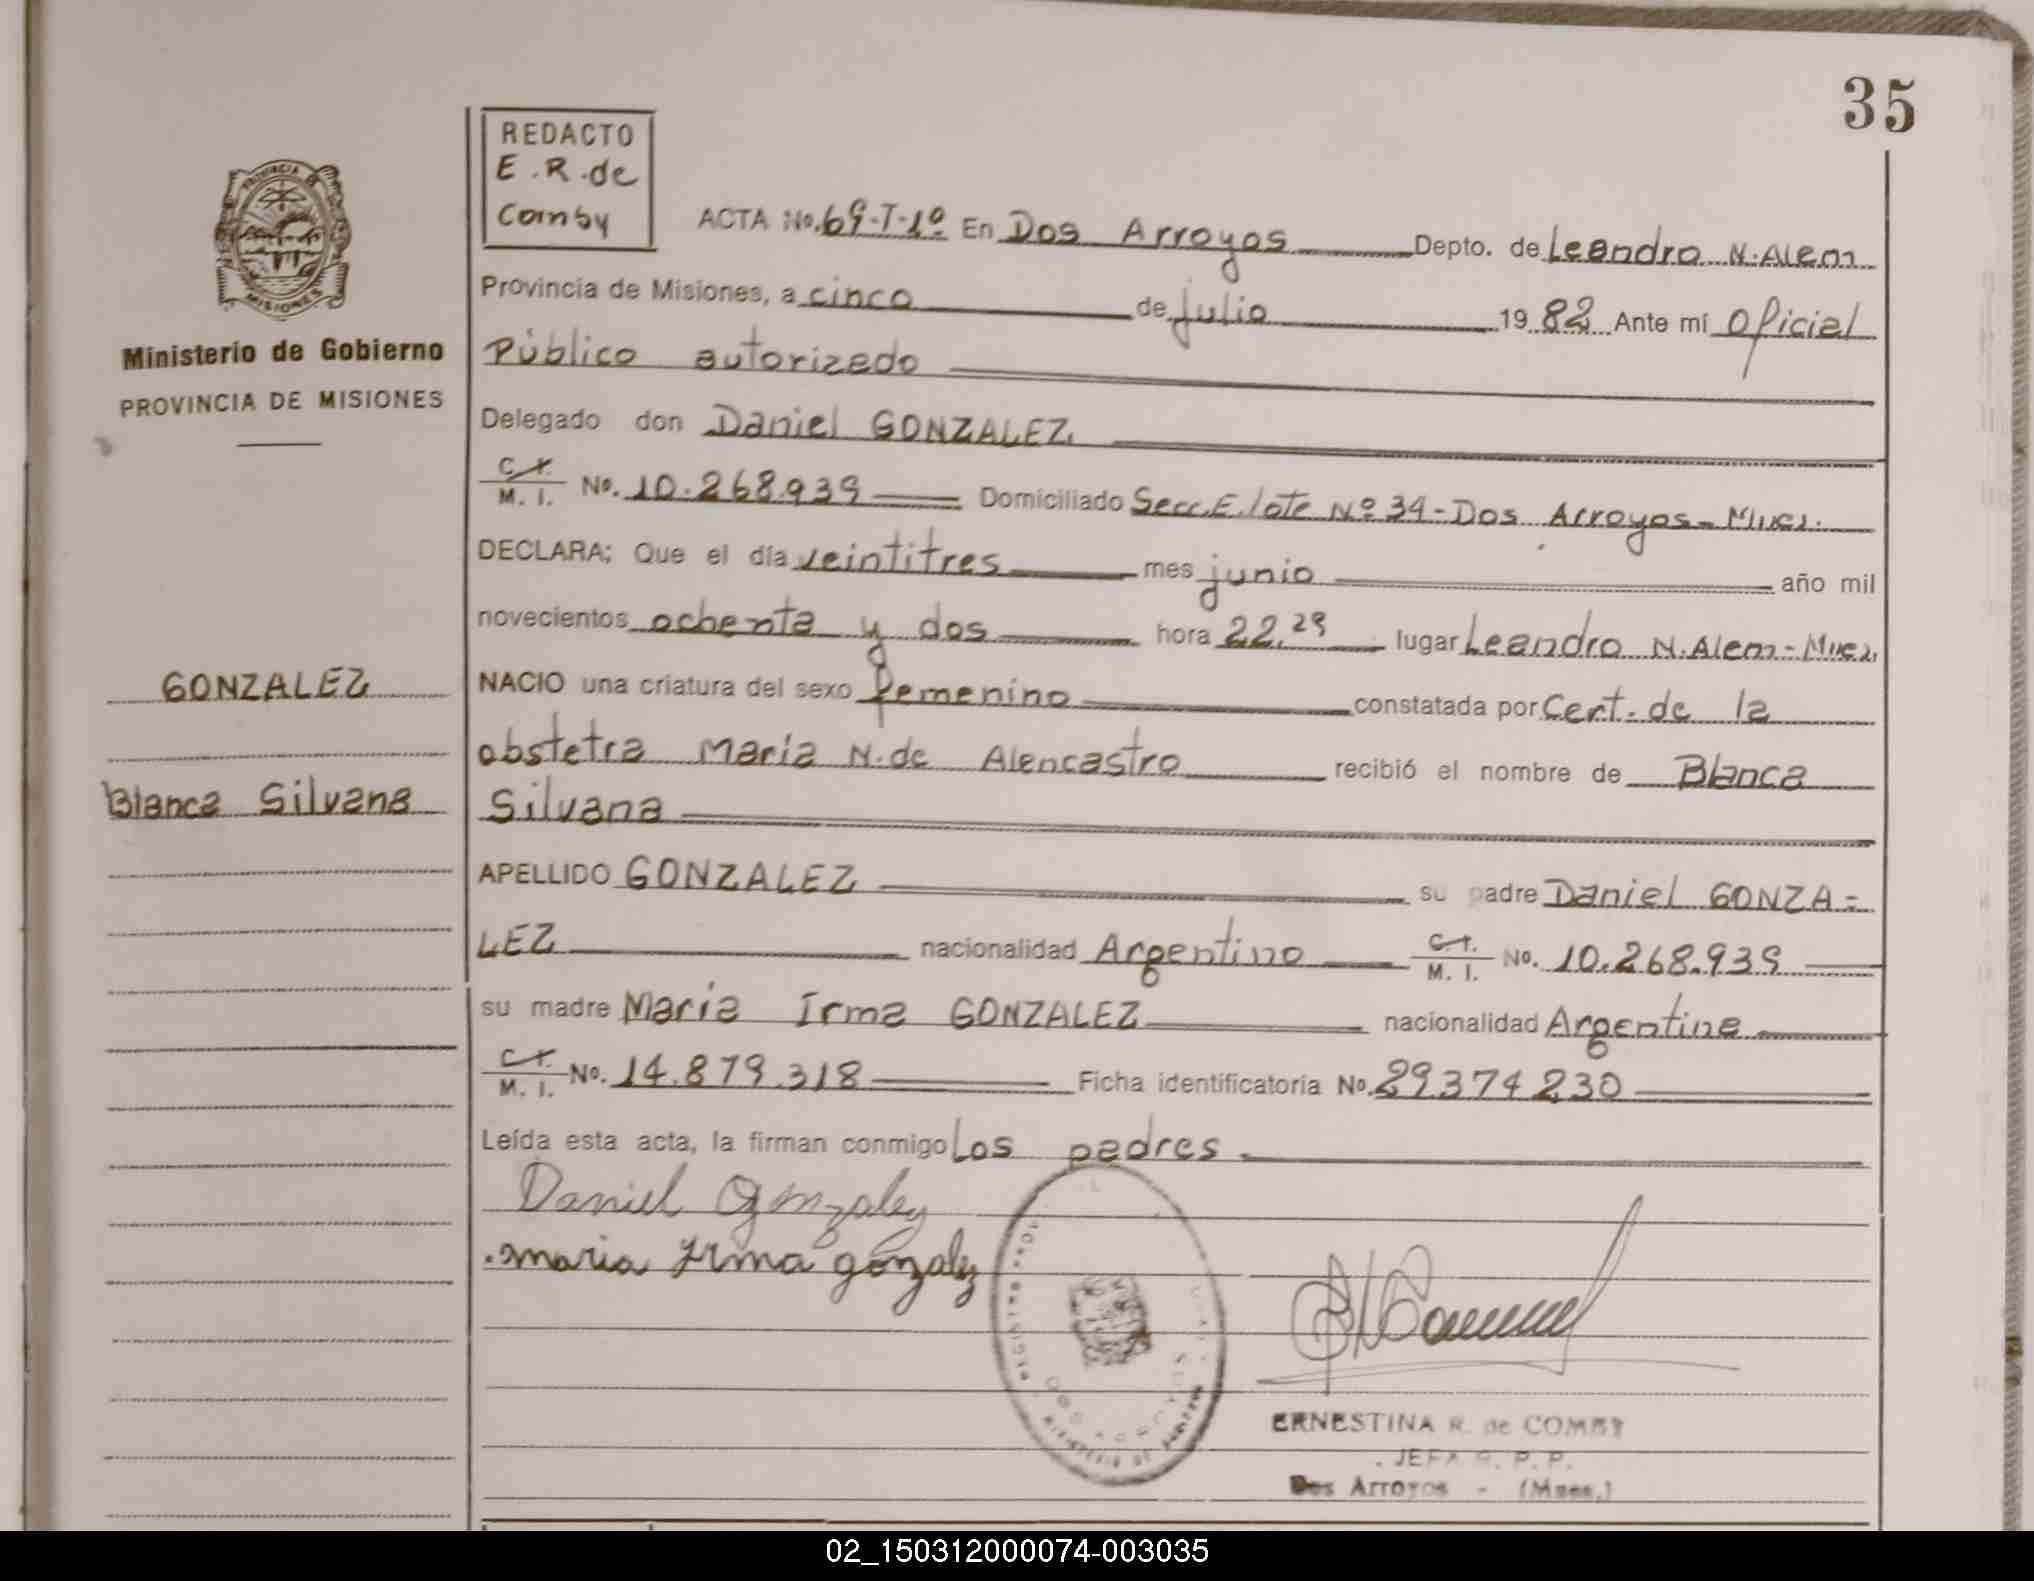 35
REDACTO
E.R.de
Comby
ACTA No. 69-T-1º En Dos Arroyos Depto. de Leandro N. Alem
Provincia de Misiones, a cinco de julio 19 82 Ante mí Oficial
Público autorizado
PROVINCIA DE
MISIONES
Ministerio de Gobierno
PROVINCIA DE MISIONES
Delegado don Daniel GONZALEZ
C.I.
M. I. No. 10.268.939 Domiciliado Secc. E. lote Nº 34 - Dos Arroyos -
DECLARA; Que el día veintitres mes junio año mil
novecientos ochenta y dos hora 22.29 lugar Leandro N. Alem -
GONZALEZ
NACIO una criatura del sexo femenino constatada por Cert. de la
obstetra Maria N. de Alencastro recibió el nombre de Blanca
Blanca Silvana
Silvana
APELLIDO GONZALEZ su padre Daniel GONZA=
LEZ nacionalidad Argentino C.I.
M. I. No. 10.268.939
su madre María Irma GONZALEZ nacionalidad Argentina
C.I.
M. I. No. 14.879.318 Ficha identificatoria No. 29374230
Leída esta acta, la firman conmigo Los padres.
Daniel Gonzalez
Maria Irma gonzalez
ERNESTINA R. de COMBY
JEFA R. P. P.
Dos Arroyos - (Mnes.)
02_150312000074-003035